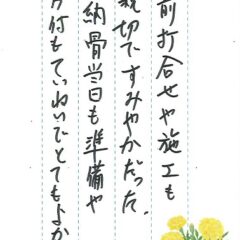 前打合せや施工も
親切ですみやかだった。
納骨当日も準備や
付もていねいでとてもよか